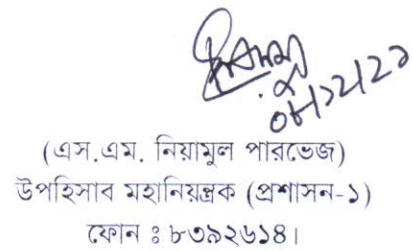 (এস.এম. নিয়ামুল পারভেজ)
উপহিসাব মহানিয়ন্ত্রক (প্রশাসন-১)
ফোন ঃ ৮৩৯২৬১৪।